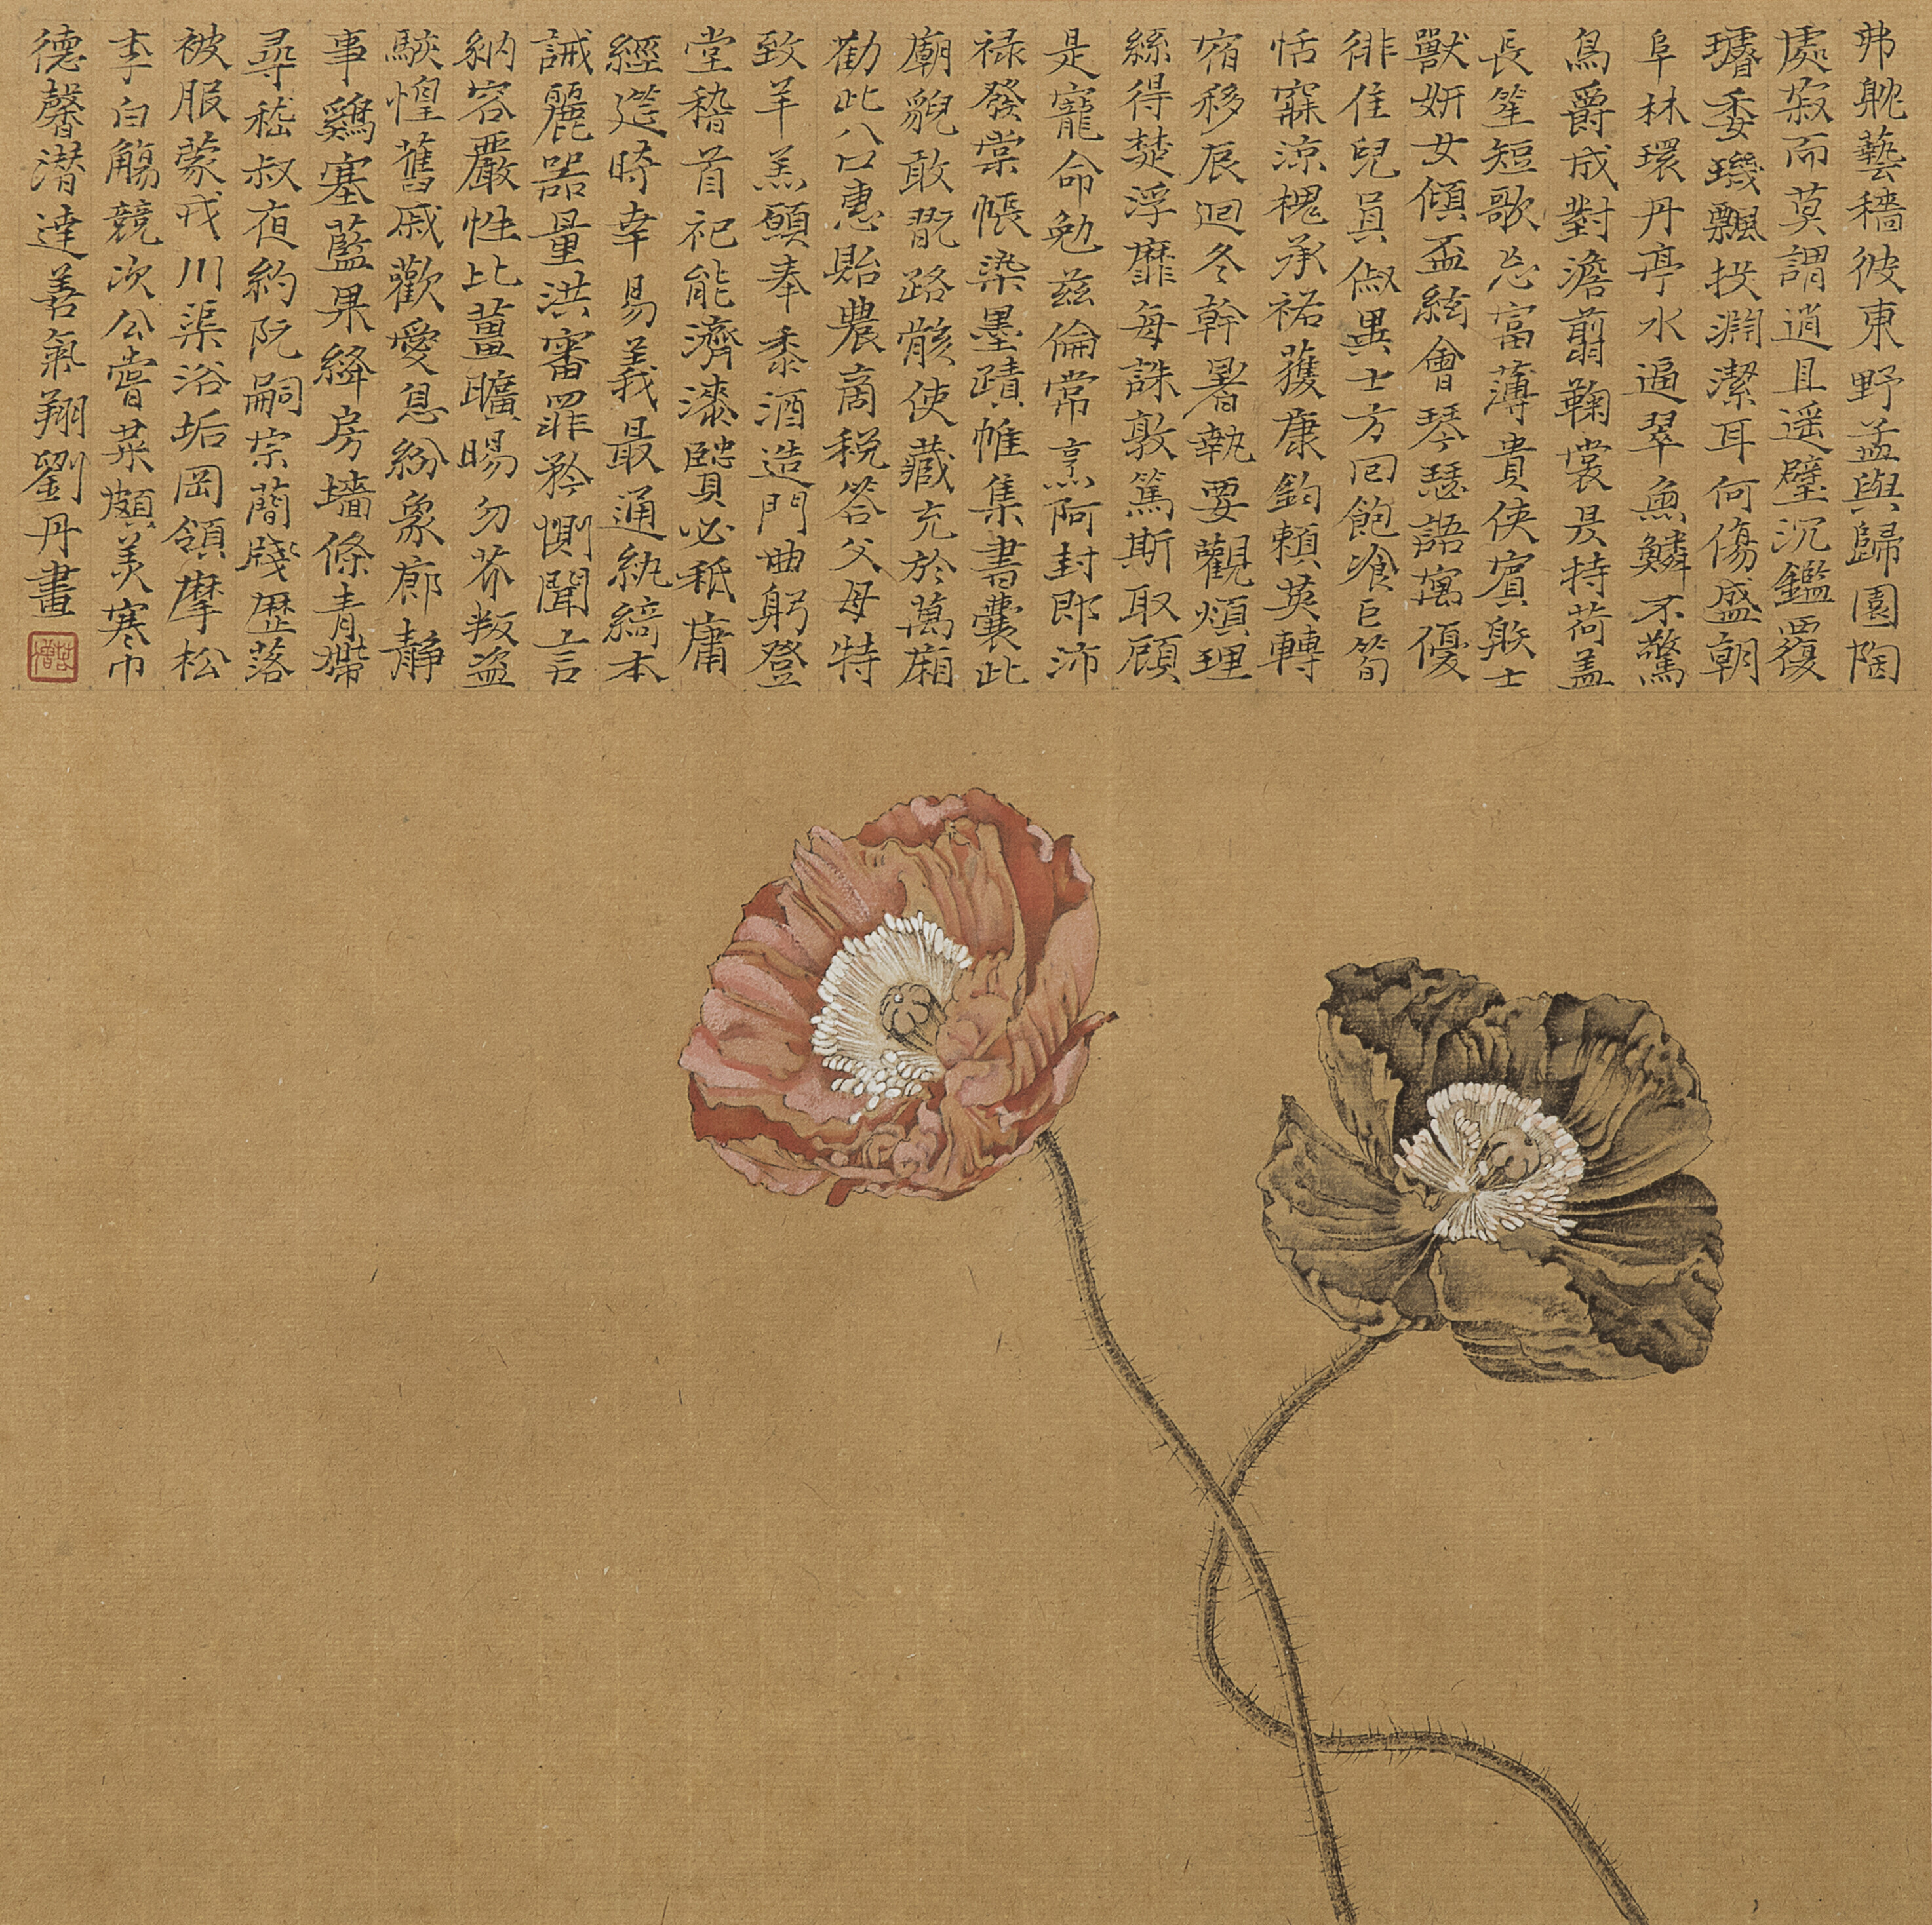 弗耽藝穡彼東野孟與歸園陶
處寂而莫謂逍且遥璧沉鑑覆
璿委璣飄投淵潔耳何傷盛朝
阜林環丹亭水遍翠魚鱗不驚
鳥爵成對澹翦鞠裳是持荷盖
長笙短歌忘富薄貴俠賓敗士
獸妍女傾盃絃會琴瑟語寓優
徘佳兒員俶異士方回飽飡巨筍
恬寐涼槐承祐獲康鈞賴英轉
宿移辰迴冬幹暑執要觀煩理
絲得楚浮靡每誅敦篤斯取顧
是寵命勉兹倫常烹阿封郎沛
禄發棠帳染墨蹟帷集書囊此
廟貌敢翫路骸使藏充於萬廂
勸此八口惠貽農商税答父母特
致羊羔願奉黍酒造門曲躬登
堂稽首祀能濟漆贃必秪庸
經筵畸幸易義最通紈綺本
誡麗器量洪審罪矜惻聞言
納容嚴性比薑曠賜勿芥叛盗
駭惶舊戚歡愛息紛象廊静
事鷄塞藍果絳房墻條青㙺
尋嵇叔夜約阮嗣宗蕳牋歴落
被服蒙戎川渠浴垢岡領摩松
李白觴競次公嘗菜頗羡寒巾
德馨潜達善氣翔劉丹畫